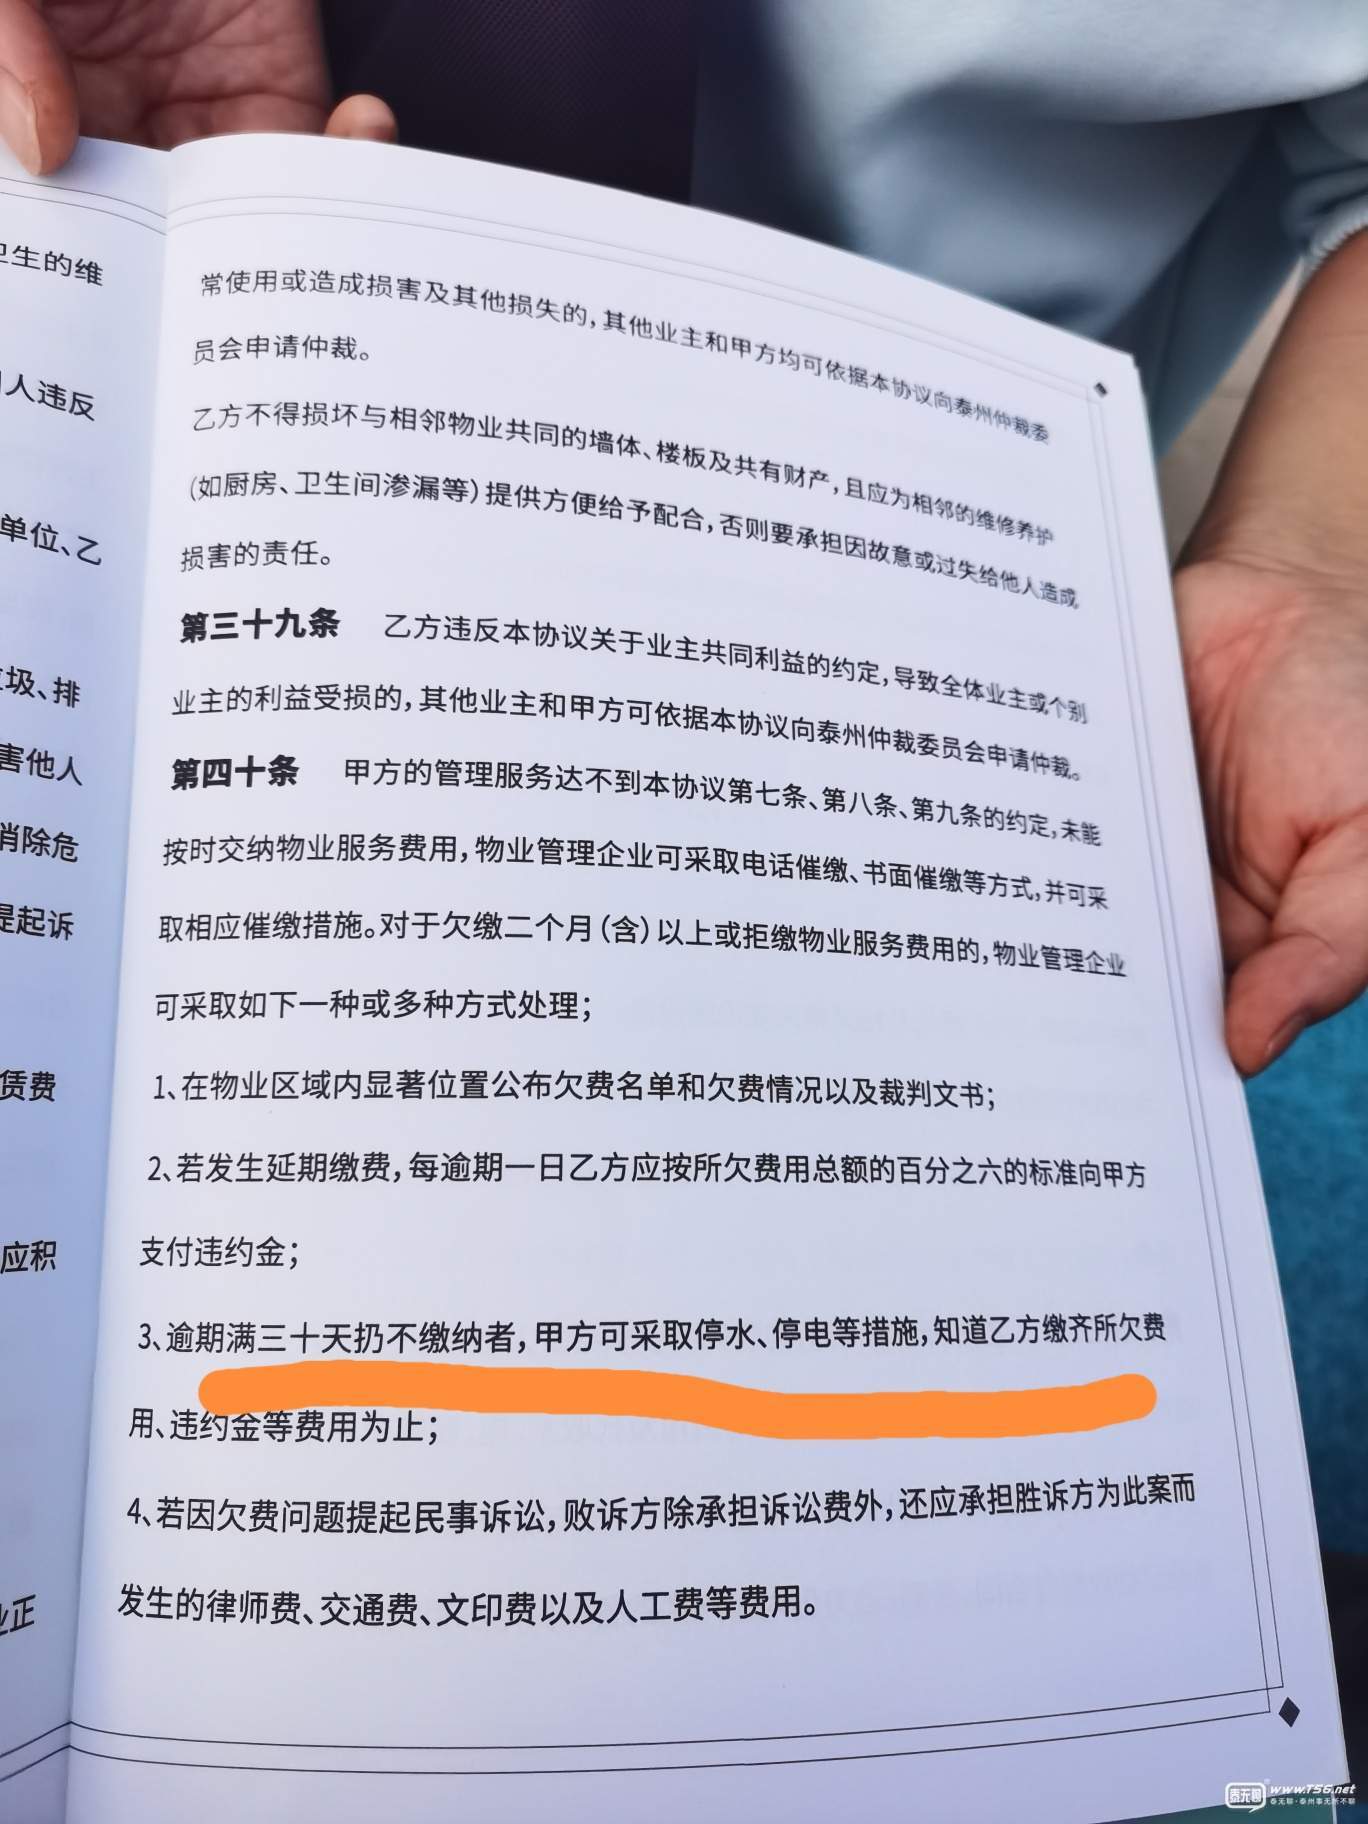 卫生的维
人违反
单位、乙
圾、排
害他人
消除危
提起诉
赁费
应积
业正
常使用或造成损害及其他损失的，其他业主和甲方均可依据本协议向泰州仲裁委
员会申请仲裁。
乙方不得损坏与相邻物业共同的墙体、楼板及共有财产，且应为相邻的维修养护
（如厨房、卫生间渗漏等）提供方便给予配合，否则要承担因故意或过失给他人造成
损害的责任。
第三十九条 乙方违反本协议关于业主共同利益的约定，导致全体业主或个别
业主的利益受损的，其他业主和甲方可依据本协议向泰州仲裁委员会申请仲裁。
第四十条 甲方的管理服务达不到本协议第七条、第八条、第九条的约定，未能
按时交纳物业服务费用，物业管理企业可采取电话催缴、书面催缴等方式，并可采
取相应催缴措施。对于欠缴二个月（含）以上或拒缴物业服务费用的，物业管理企业
可采取如下一种或多种方式处理；
1、在物业区域内显著位置公布欠费名单和欠费情况以及裁判文书；
2、若发生延期缴费，每逾期一日乙方应按所欠费用总额的百分之六的标准向甲方
支付违约金；
3、逾期满三十天扔不缴纳者，甲方可采取停水、停电等措施，知道乙方缴齐所欠费
用、违约金等费用为止；
4、若因欠费问题提起民事诉讼，败诉方除承担诉讼费外，还应承担胜诉方为此案而
发生的律师费、交通费、文印费以及人工费等费用。
泰无聊 www.T56.net
泰无聊·泰州事无所不聊